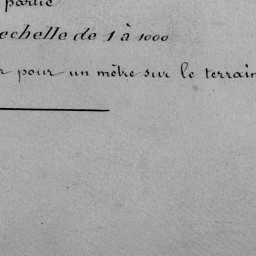 partie
echelle de 1 à 1000
pour un mètre sur le terrain